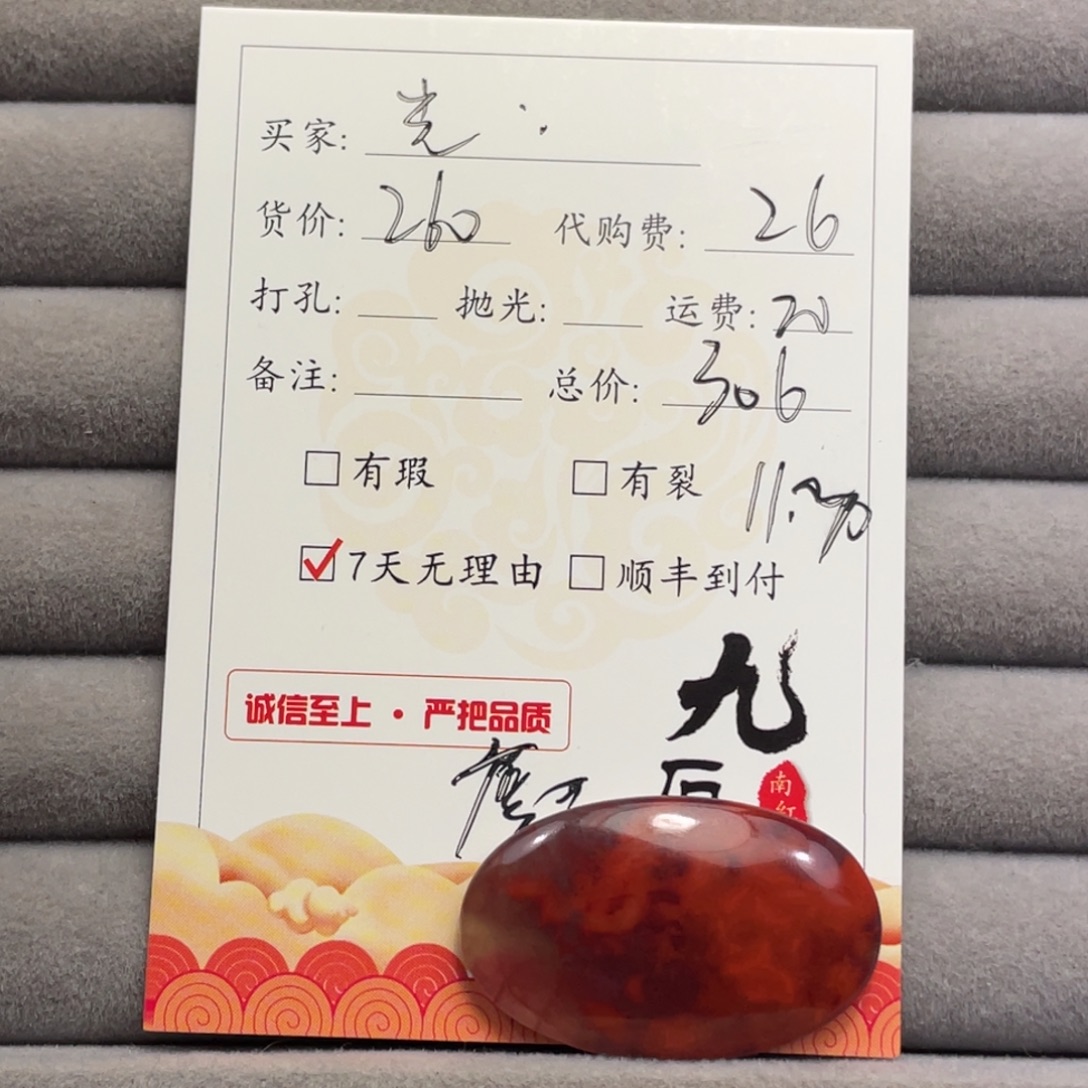 买家: 光
货价: 260 代购费: 26
打孔: 抛光: 运费: 20
备注: 总价: 306
有瑕 有裂 11.30
7天无理由 顺丰到付
诚信至上·严把品质
九
南红